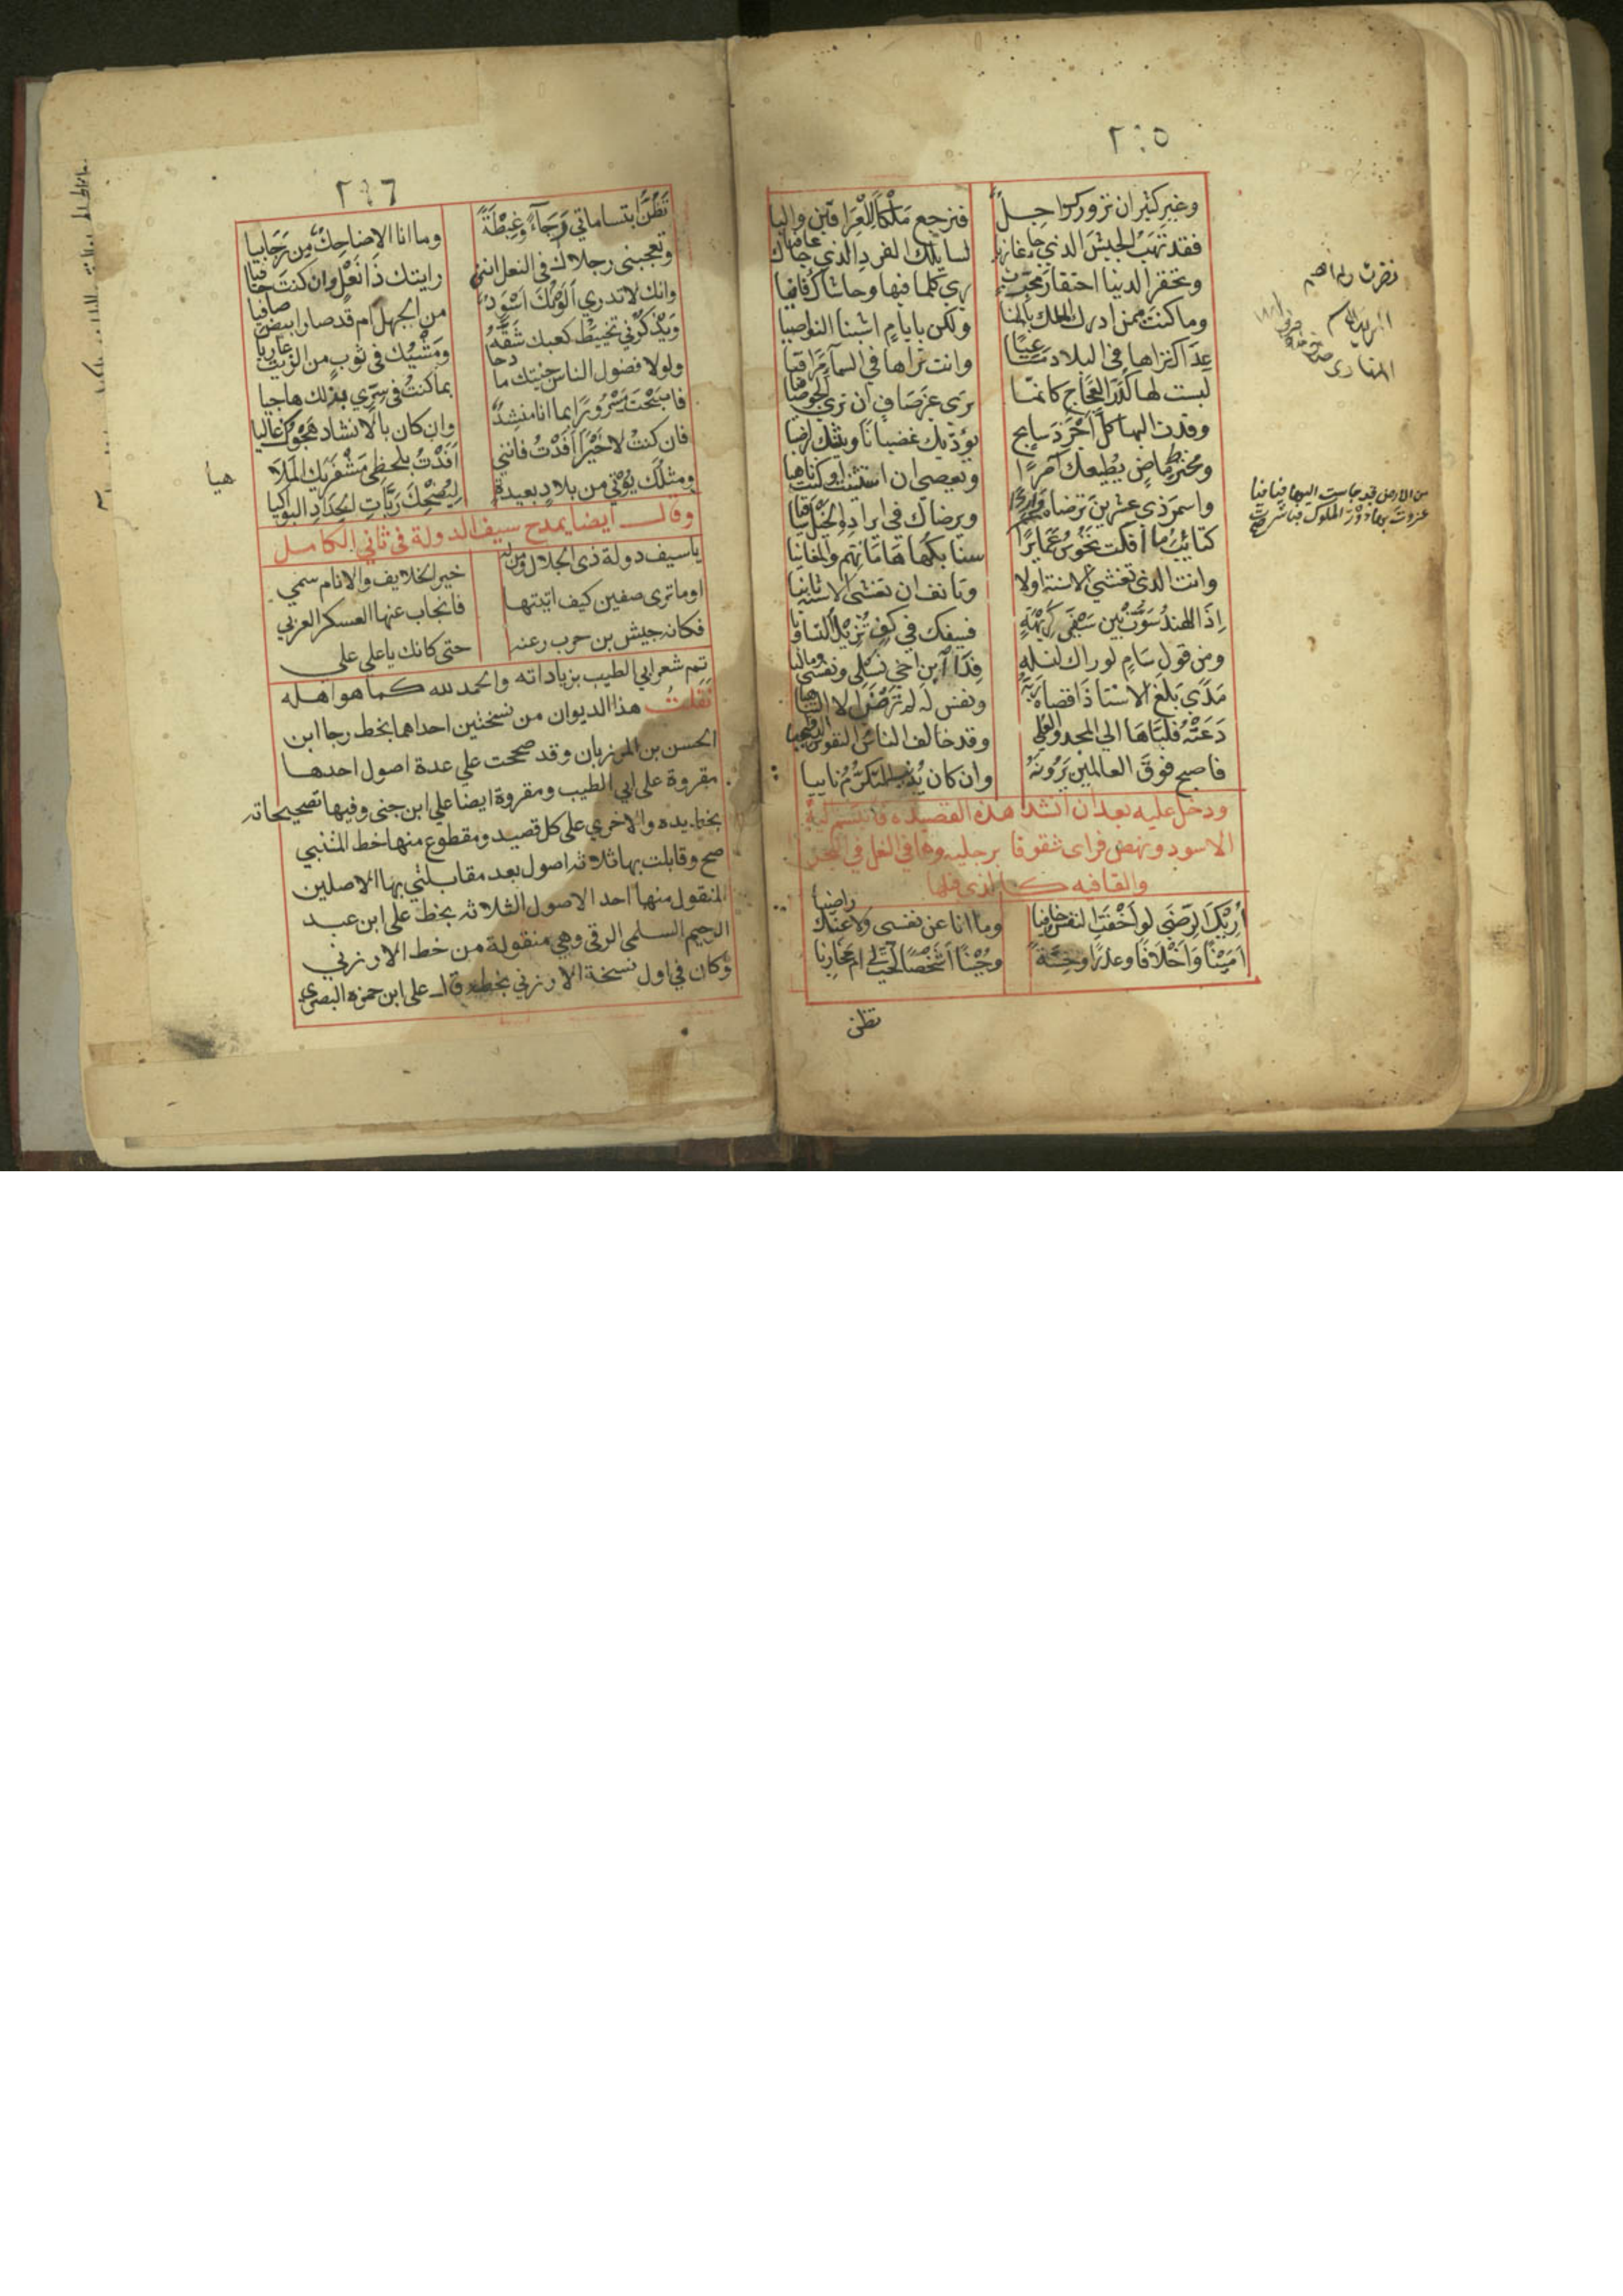 ٢٠٥
وغير كثير ان نزورك راجل فترجع ملكا للعراقين واليا
فقد تهب الجيش الذي جا غازيا لسايلك الفرد الذي جا عافيا
وتحتقر الدنيا احتقار مجرب يرى كلما فيها وحاشاك فانيا
وما كنت ممن ادرك الملك بالمنا ولكن بايام اشبنا النواصيا
عداك تراها في البلاد مساعيا وانت تراها في السمآ مراقيا
لبست لها كدر العجاج كانما ترى غير صاف ان ترى الجو صافيا
وقدت اليها كل اجرد سابح يؤديك غضبانا ويثنيك راضيا
ومخترط ماض يطيعك آمرا ويعصي ان استثنيت او كنت ناهيا
واسمر ذي عشرين ترضاه واردا ويرضاك في ايراده الخيل ساقيا
كتائب ما انفكت تجوس عمايرا
من الارض قد جاست اليها فيافيا
غزوت بها دور الملوك فباشرت
سنابكها هاماتهم والمغانيا
وانت الذي تغشى الاسنة اولا وتانف ان تغشى الاسنة ثانيا
اذا الهند سوت بين سيفي كريهة فسيفك في كف تزيل التساويا
ومن قول سام لو راك لنسله فدا ابن اخي نسلي ونفسي وماليا
مدى بلغ الاستاذ اقصاه ربه ونفس له لم ترض الا التناهيا
دعته فلباها الى المجد والعلى وقد خالف الناس النفوس الدواعيا
فاصبح فوق العالمين يرونه وان كان يدنيه التكرم نايبا
ودخل عليه بعد ان انشد هذه القصيدة فابتسم اليه
الاسود ونهض فراى شقوقا برجليه
والقافيه كالذي قبلها
اريك الرضى لو اخفت النفس خافيا وما انا عن نفسي ولا عنك راضيا
امينا واخلافا وغدرا وخسة وجبنا اشخصا لحت لي ام مخازيا
تظن
٢٠٦
تظن ابتساماتي رجآء وغبطة وما انا الا ضاحك من رجائيا
وتعجبني رجلاك في النعل انني رايتك ذا نعل وان كنت حافيا
وانك لا تدري الونك اسود من الجهل ام قد صار ابيض صافيا
ويذكرني تخييط كعبك شقه ومشيك في ثوب من الزيت عاريا
ولولا فضول الناس جئتك مادحا بما كنت في سري به لك هاجيا
فاصبحت مسرورا بما انا منشد وان كان بالانشاد هجوك غاليا
فان كنت لا خيرا افدت فانني افدت بلحظي مشفريك الملاهيا
ومثلك يؤتي من بلاد بعيدة ليضحك ربات الحداد البواكيا
وقال ايضا يمدح سيف الدولة في ثاني الكامل
يا سيف دولة ذي الجلال ومن له خير الخلايف والانام سمي
اوما ترى صفين كيف اتيتها فانجاب عنها العسكر الغربي
فكانه جيش بن حرب رعته حتى كانك يا علي علي
تم شعر ابي الطيب بزياداته والحمد لله كما هو اهله
نقلت هذا الديوان من نسختين احداهما بخط رجا ابن
الحسن بن المرزبان وقد صححت على عدة اصول احدها
مقروة على ابي الطيب ومقروة ايضا على ابن جني وفيها تصحيحاته
بخط يده والاخرى على كل قصيد ومقطوع منها خط المتنبي
صح وقابلت بها ثلاثه اصول بعد مقابلتي بها الاصلين
المنقول منها احد الاصول الثلاثه بخط على ابن عبد
الرحيم السلمي الرقي وهي منقولة من خط الارزني
وكان في اول نسخة الارزني بخطه قال على ابن حمزه البصري